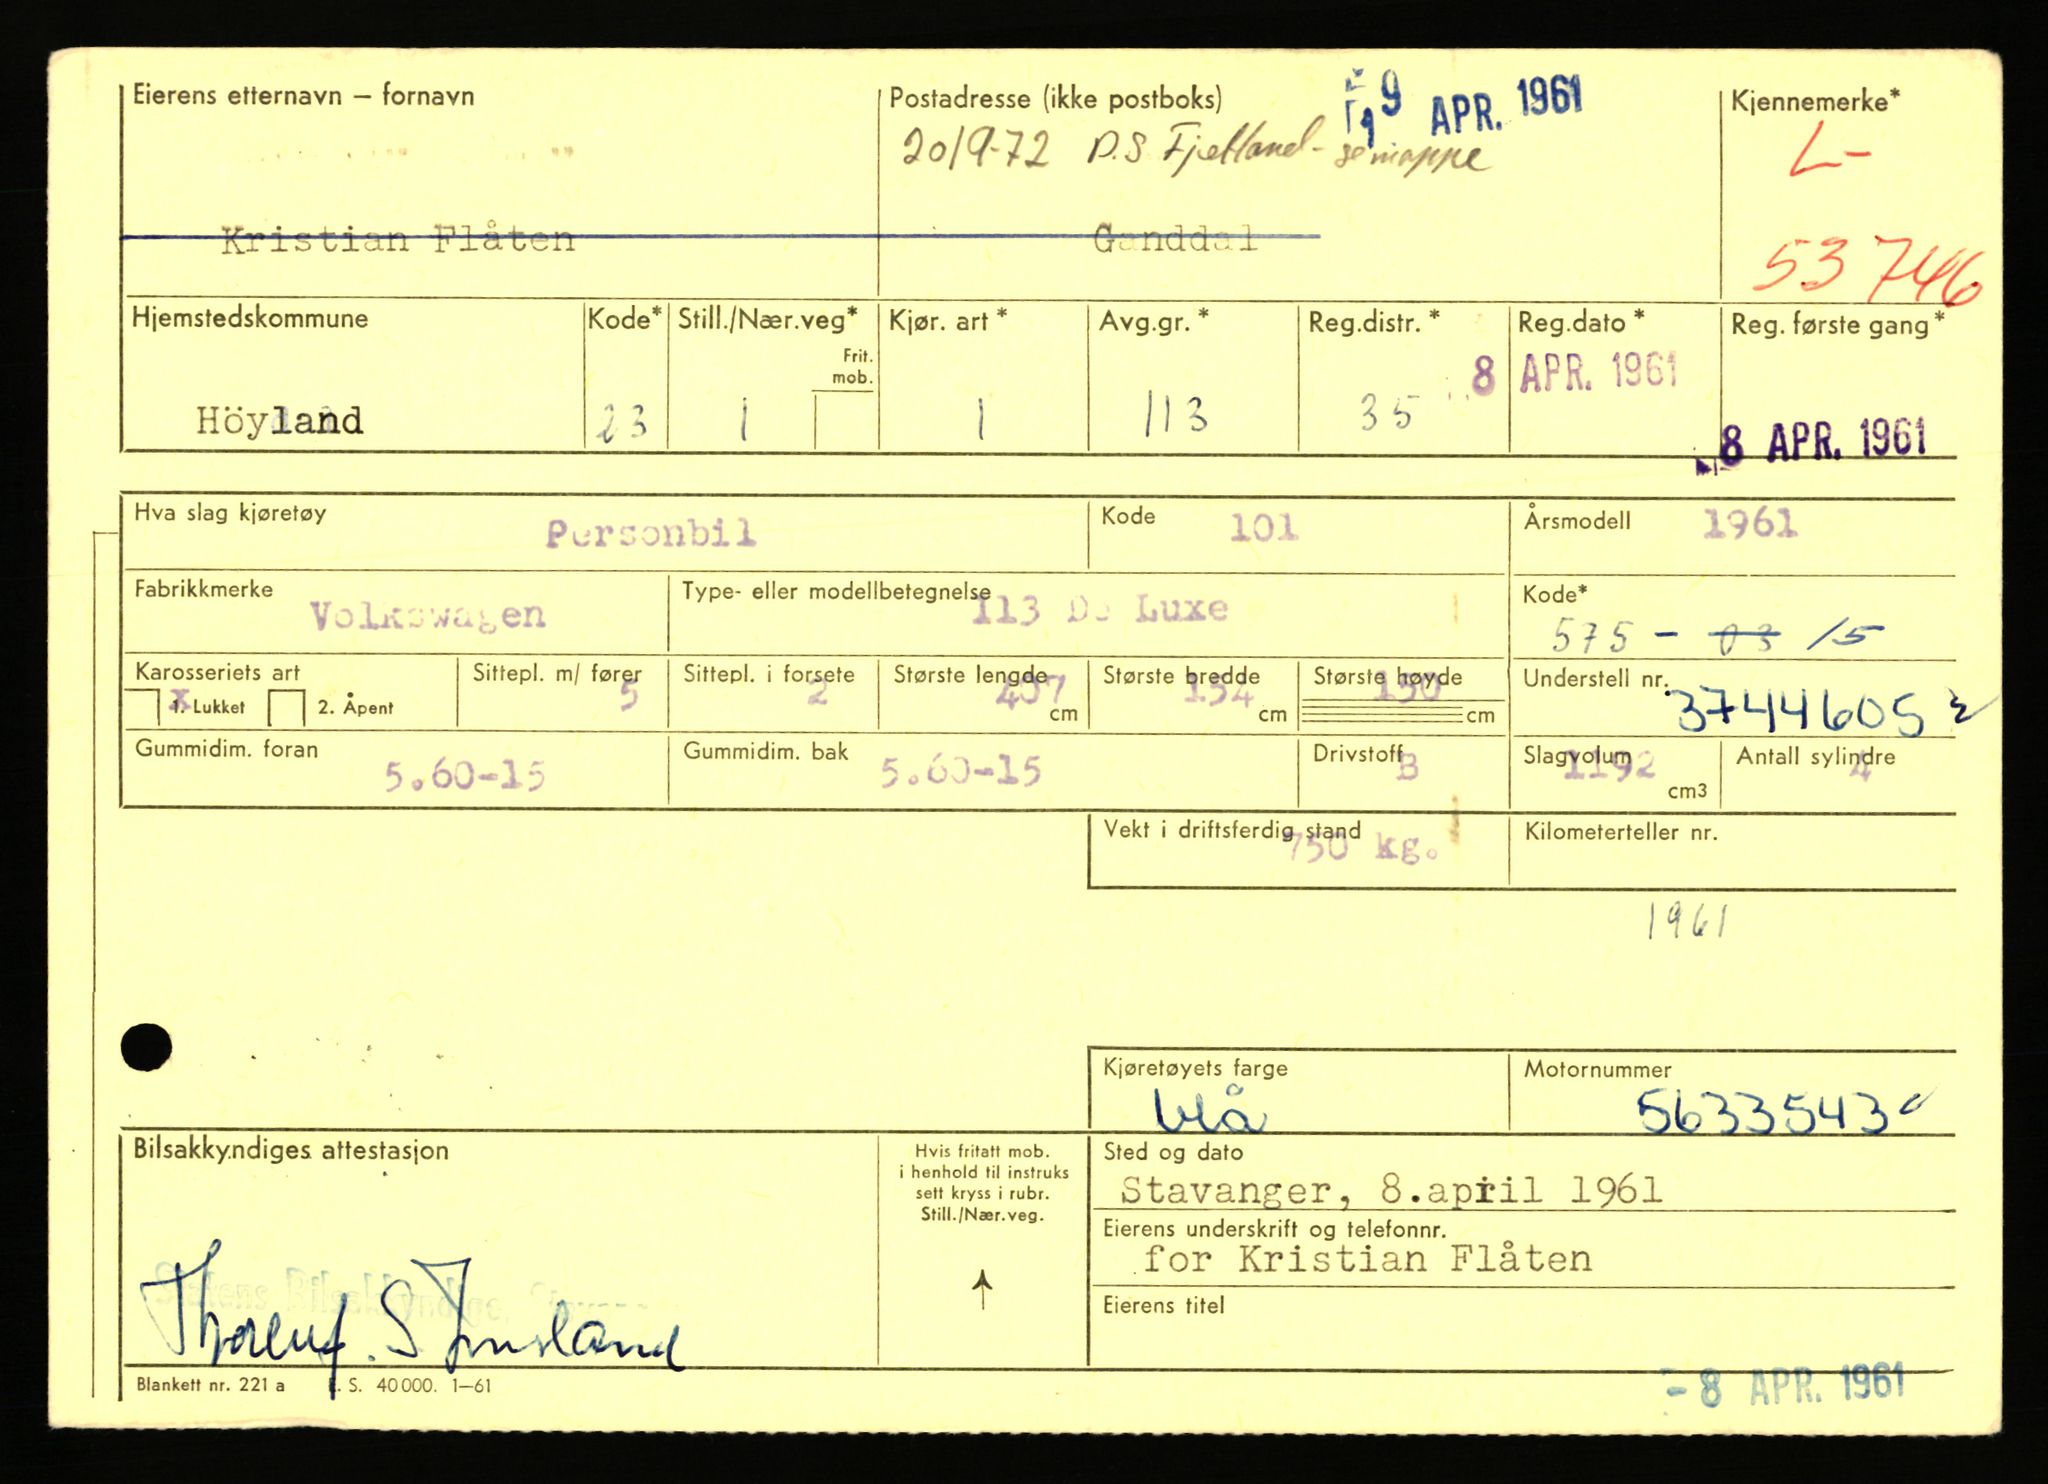 Eierens etternavn – fornavn
Postadresse (ikke postboks)
9 APR. 1961
Kjennemerke*
20/9-72 P.S. Fjetland - se mappe
L-
Kristian Flåten
Ganddal
53746
Hjemstedskommune
Kode*
Still./Nær.veg*
Frit. mob.
Kjør. art *
Avg.gr. *
Reg.distr. *
Reg.dato *
Reg. første gang*
Höyland
23
1
1
113
35
8 APR. 1961
8 APR. 1961
Hva slag kjøretøy
Personbil
Kode
101
Årsmodell
1961
Fabrikkmerke
Volkswagen
Type- eller modellbetegnelse
113 De Luxe
Kode*
575 - 03 15
Karosseriets art
x 1. Lukket
2. Åpent
Sittepl. m/ fører
5
Sittepl. i forsete
2
Største lengde
407 cm
Største bredde
154 cm
Største høyde
150 cm
Understell nr.
3744605
Gummidim. foran
5.60-15
Gummidim. bak
5.60-15
Drivstoff
B
Slagvolum
1192 cm3
Antall sylindre
4
Vekt i driftsferdig stand
750 kg.
Kilometerteller nr.
1961
Kjøretøyets farge
blå
Motornummer
5633543
Bilsakkyndiges attestasjon
Hvis fritatt mob.
i henhold til instruks
sett kryss i rubr.
Still./Nær.veg.
Sted og dato
Stavanger, 8.april 1961
Eierens underskrift og telefonnr.
for Kristian Flåten
Statens Bilsakkyndige,
Eierens titel
Blankett nr. 221 a
E. S. 40000. 1–61
- 8 APR. 1961